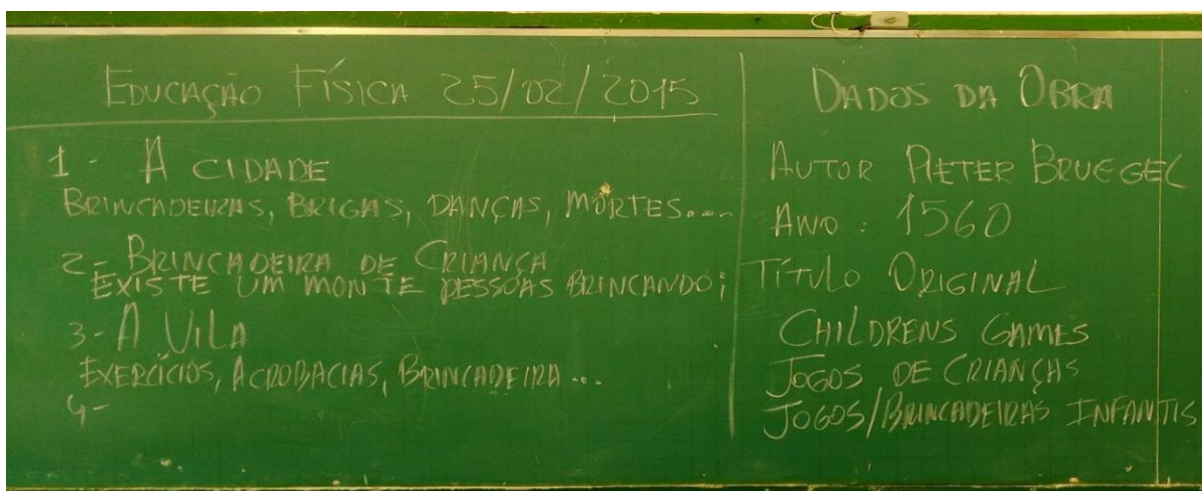 EDUCAÇÃO FÍSICA 25/02/2015
1 - A CIDADE
BRINCADEIRAS, BRIGAS, DANÇAS, MORTES....
2 - BRINCADEIRA DE CRIANÇA
EXISTE UM MONTE PESSOAS BRINCANDO;
3 - A VILA
EXERCÍCIOS, ACROBACIAS, BRINCADEIRA ...
4 -
DADOS DA OBRA
AUTOR PIETER BRUEGEL
ANO : 1560
TÍTULO ORIGINAL
CHILDRENS GAMES
JOGOS DE CRIANÇAS
JOGOS/BRINCADEIRAS INFANTIS